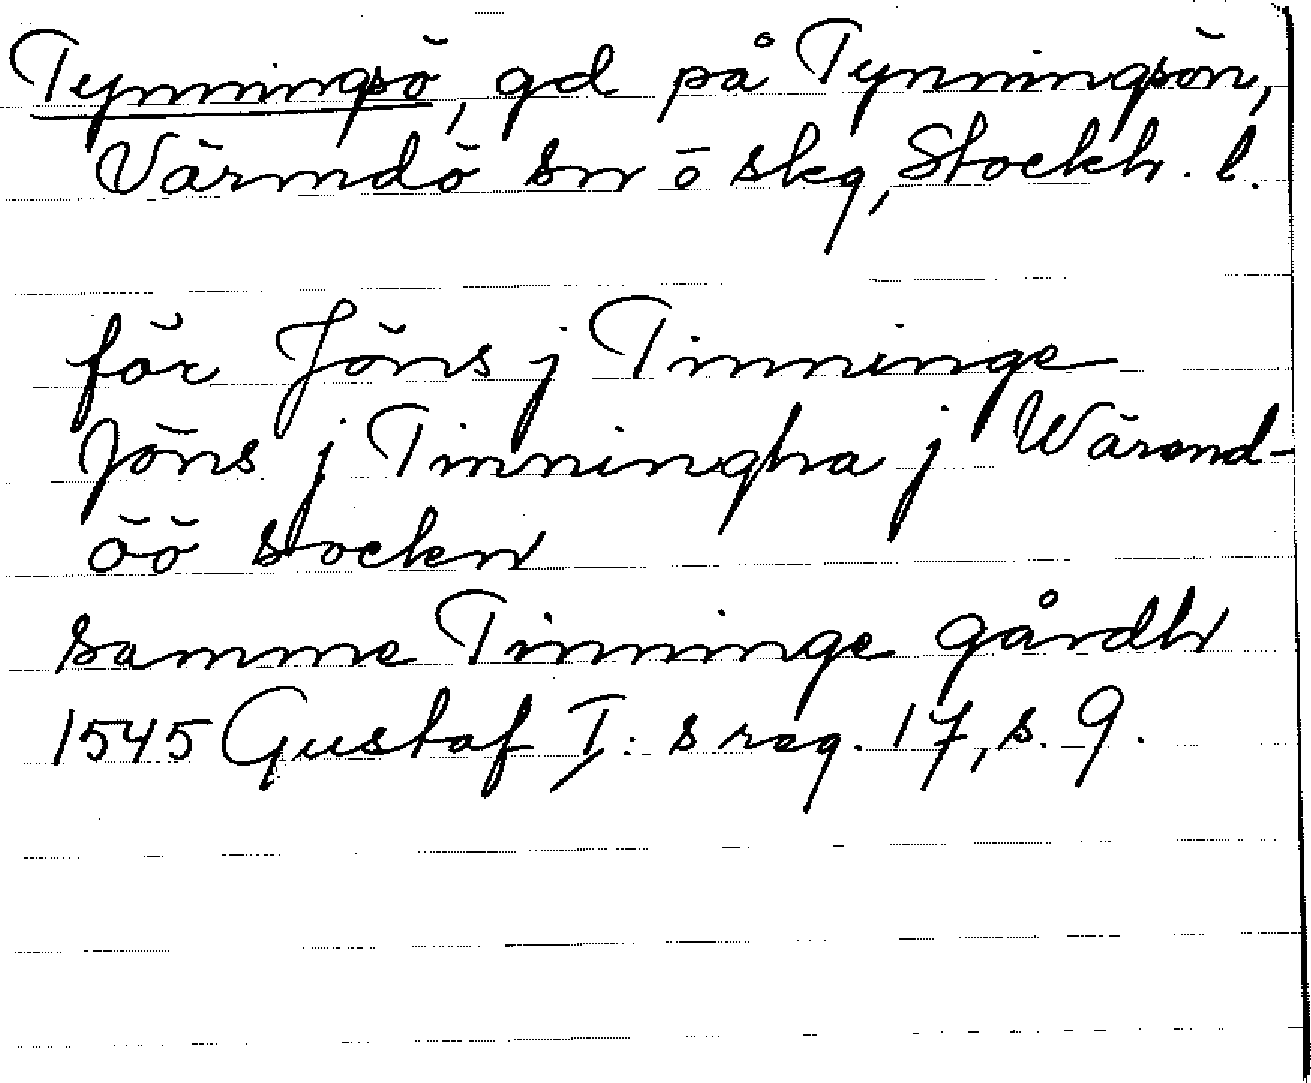 Tynningsö, gd på Tynningsön,
Värmdö sn ö skg, Stockh. l.
för Jöns j Tinninge
Jöns j Tinningha j Wärend-
öö sockn
samme Tinninge gårdh
1545 Gustaf I:s reg. 17, s. 9.